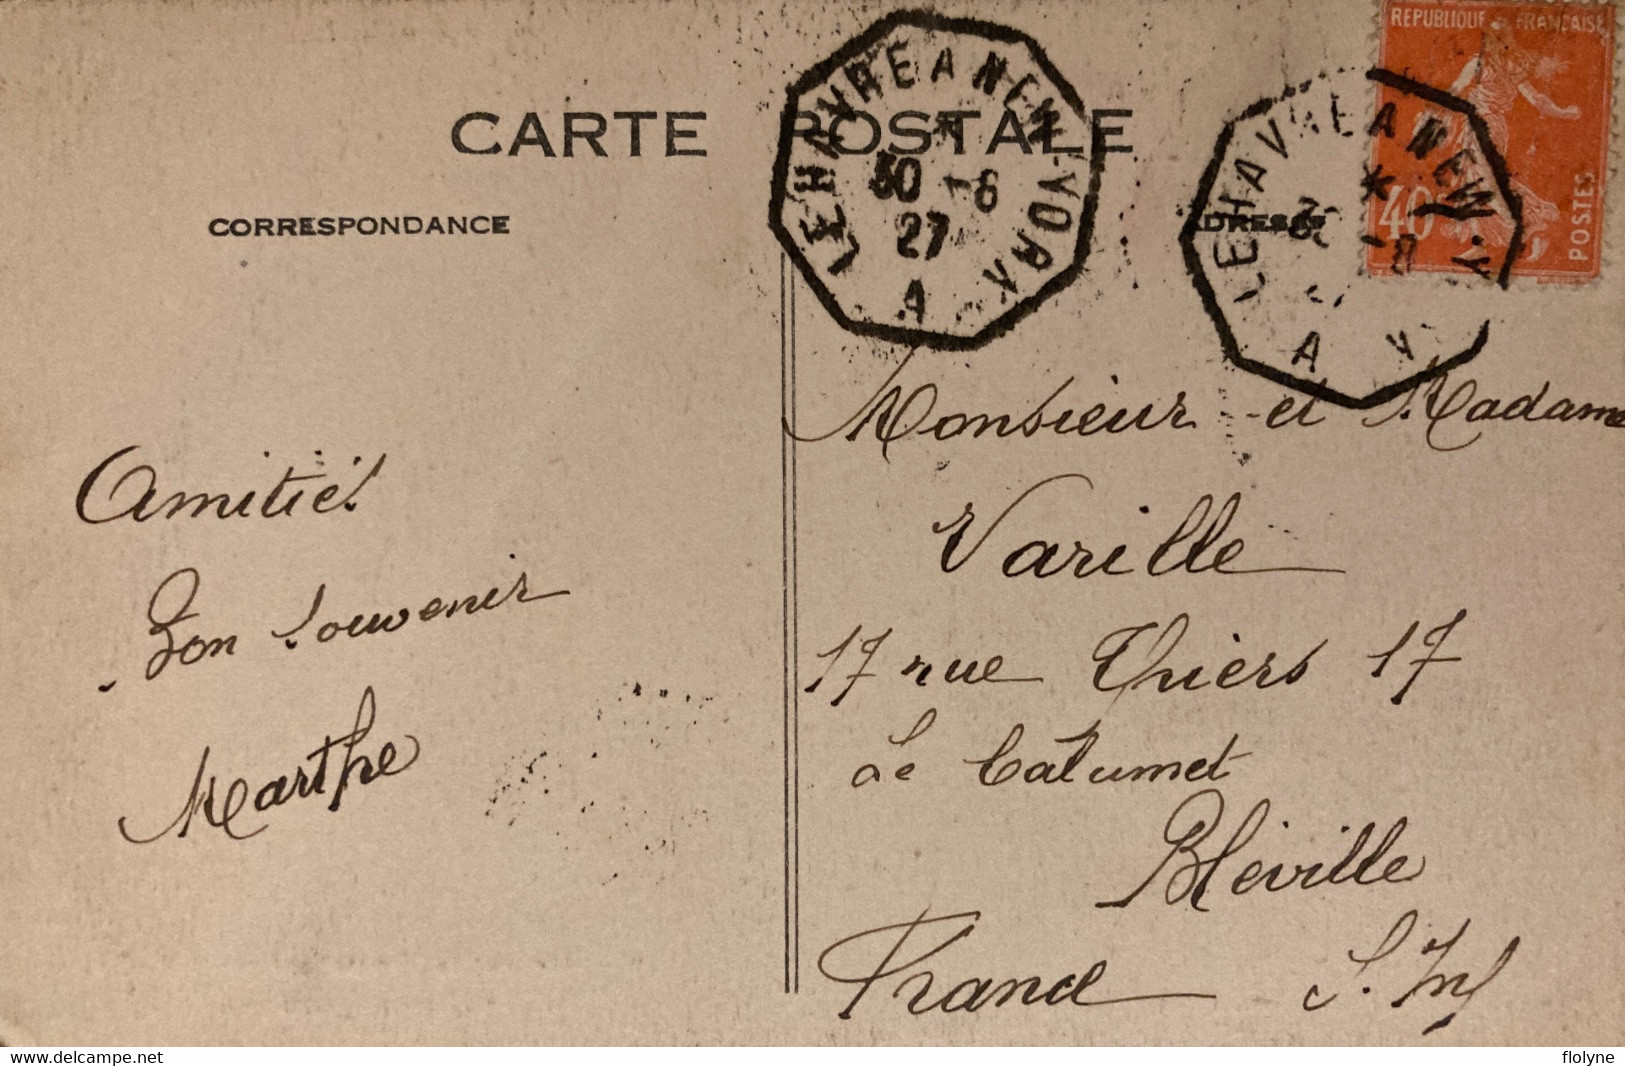 CARTE POSTALE
CORRESPONDANCE
ADRESSE
RÉPUBLIQUE FRANÇAISE
40
POSTES
LE HAVRE A NEW-YORK
*
30 -8
27
A
LE HAVRE A NEW-Y K
*
-8
A
Amitiés
Bon Souvenir
Marthe
Monsieur et Madame
Varille
17 rue Thiers 17
Le Calumet
Bléville
France S. Inf
delcampe.net
flolyne